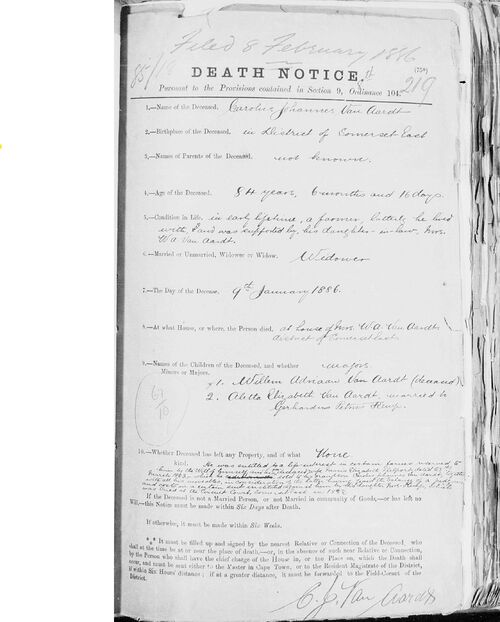 Filed 8 February 1886
85/18
DEATH NOTICE.
219
Pursuant to the Provisions contained in Section 9, Ordinance 104.
1.—Name of the Deceased. Carolus Johannes Van Aardt
2.—Birthplace of the Deceased. in District of Somerset East
3.—Names of Parents of the Deceased. not known.
4.—Age of the Deceased. 84 years, 6 months and 16 days.
5.—Condition in Life. in early lifetime, a farmer, latterly he lived
with & was supported by, his daughter-in-law, Mrs.
W A Van Aardt.
6.—Married or Unmarried, Widower or Widow. Widower
7.—The Day of the Decease. 9th January 1886.
8.—At what House, or where, the Person died. at house of Mrs. W A Van Aardt
district of Somerset East
9.—Names of the Children of the Deceased, and whether majors.
Minors or Majors.
1. Willem Adriaan Van Aardt (deceased)
2. Aletta Elizabeth Van Aardt, married to
Gerhardus
10.—Whether Deceased has left any Property, and of what None
kind. He was entitled to a life interest in certain farms
If the Deceased is not a Married Person, or not Married in community of Goods,—or has left no
Will,—this Notice must be made within Six Days after Death.
If otherwise, it must be made within Six Weeks.
*** It must be filled up and signed by the nearest Relative or Connection of the Deceased, who
shall at the time be at or near the place of death,—or, in the absence of such near Relative or Connection,
by the Person who shall have the chief charge of the House in, or the Place on, which the Death shall
occur, and must be sent either to the Master in Cape Town, or to the Resident Magistrate of the District,
if within Six Hours' distance; if at a greater distance, it must be forwarded to the Field-Cornet of the
District.
C. J. Van Aardt